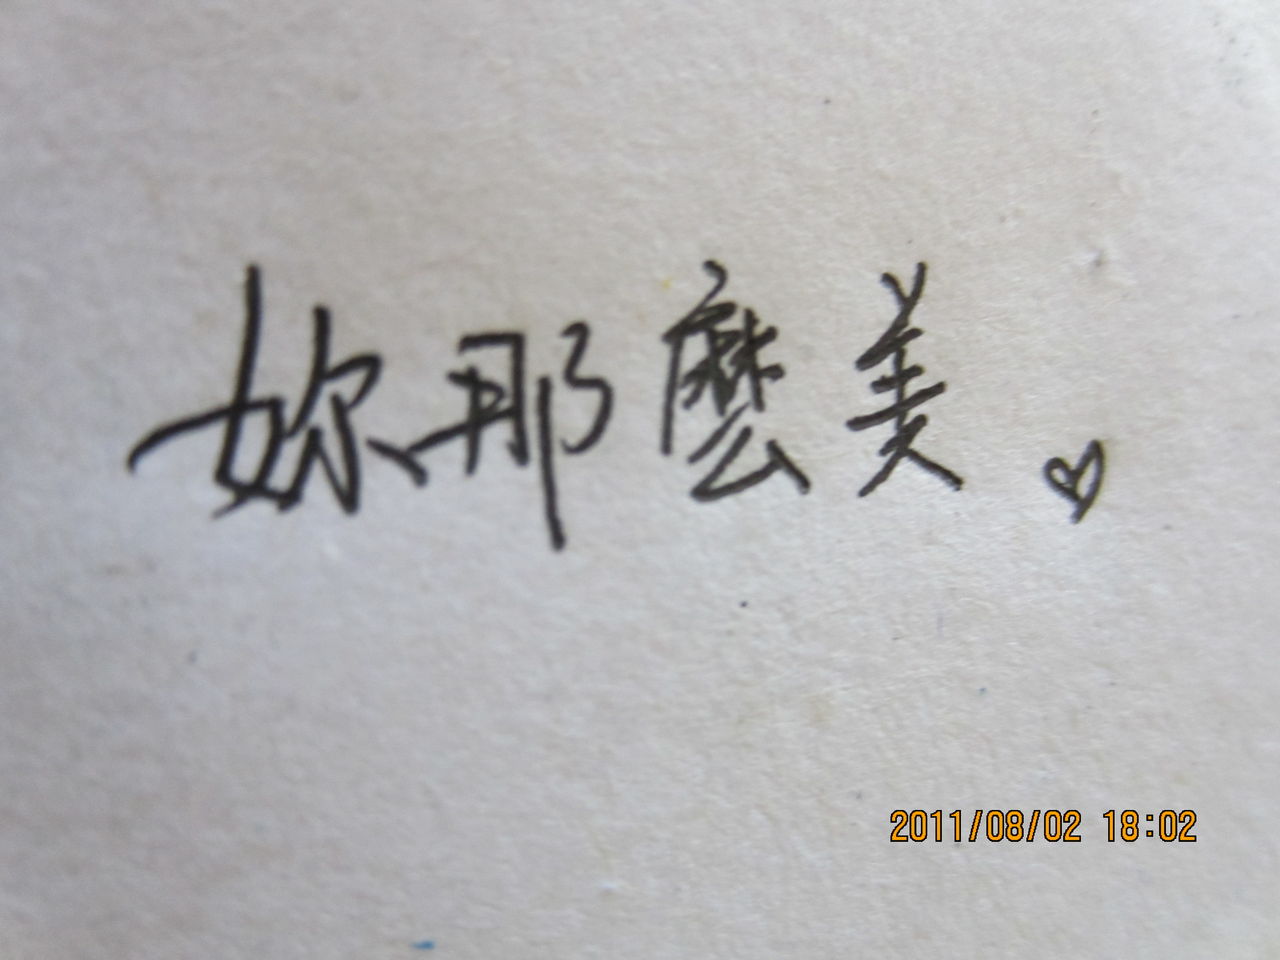 妳那麼美。♡
2011/08/02 18:02